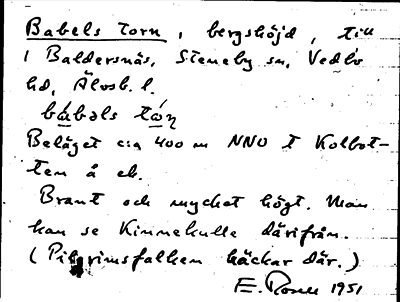 Babels torn, bergshöjd, till
1 Baldersnäs, Steneby sn, Vedbo
hd, Älvsb. l.
bábəls tóɳ
Beläget c:a 400 m NNO t Kolbot-
ten å ek.
Brant och mycket högt. Man
kan se Kinnekulle därifrån.
(Pilgrimsfalken häckar där.)
E. Rosell 1951